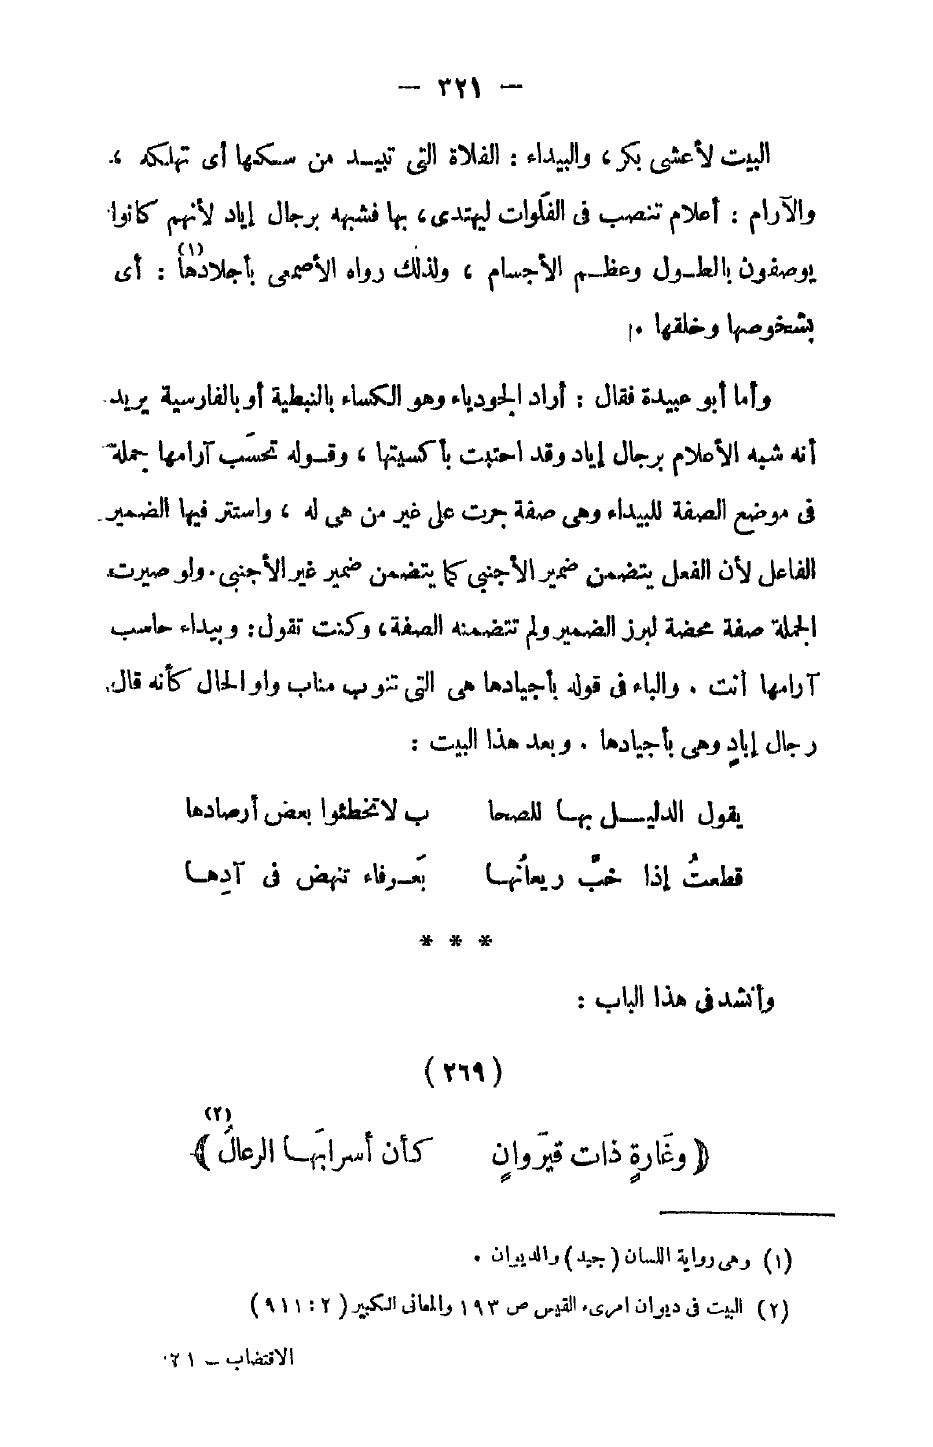 — ٣٢١ —
البيت لأعشى بكر ، والبيداء : الفلاة التى تبيـد من سـكنها أى تهلكه ،
والآرام : أعلام تنصب فى الفلَوات ليهتدى ، بها فشبهه برجال إياد لأنهم كانوا
يوصفون بالطـول وعظـم الأجسام ، ولذلك رواه الأصمعى بأجلادها (١) : أى
بشخوصها وخلقها .
وأما أبو عبيدة فقال : أراد الجودياء وهو الكساء بالنبطية أو بالفارسية يريد
أنه شبه الأعلام برجال إياد وقد احتبت بأكسيتها ، وقـوله تحسَب آرامها جملة
فى موضع الصفة للبيداء وهى صفة جرت على غير من هى له ، واستتر فيها الضمير
الفاعل لأن الفعل يتضمن ضمير الأجنبى كما يتضمن ضمير غير الأجنبى . ولو صيرت
الجملة صفة محضة لبرز الضمير ولم تتضمنه الصفة ، وكنت تقول : وبيداء حاسب
آرامها أنت . والباء فى قوله بأجيادها هى التى تنوب مناب واو الحال كأنه قال
رجال إيادٍ وهى بأجيادها . وبعد هذا البيت :
يقول الدليـل بهـا للصحا ب لا تخطئوا بعض أرصادها
قطعتُ إذا خبَّ ريعانُهـا بَعـرفاء تنهض فى آدِهـا
* * *
وأنشد فى هذا الباب :
(٢٦٩)
﴿ وغَارةٍ ذات قيرَّوانٍ كأن أسرابَهـا الرعالُ ﴾ (٢)
(١) وهى رواية اللسان (جيد) والديوان .
(٢) البيت فى ديوان امرىء القيس ص ١٩٣ والمعانى الكبير (٢ : ٩١١)
الاقتضاب – ٢١